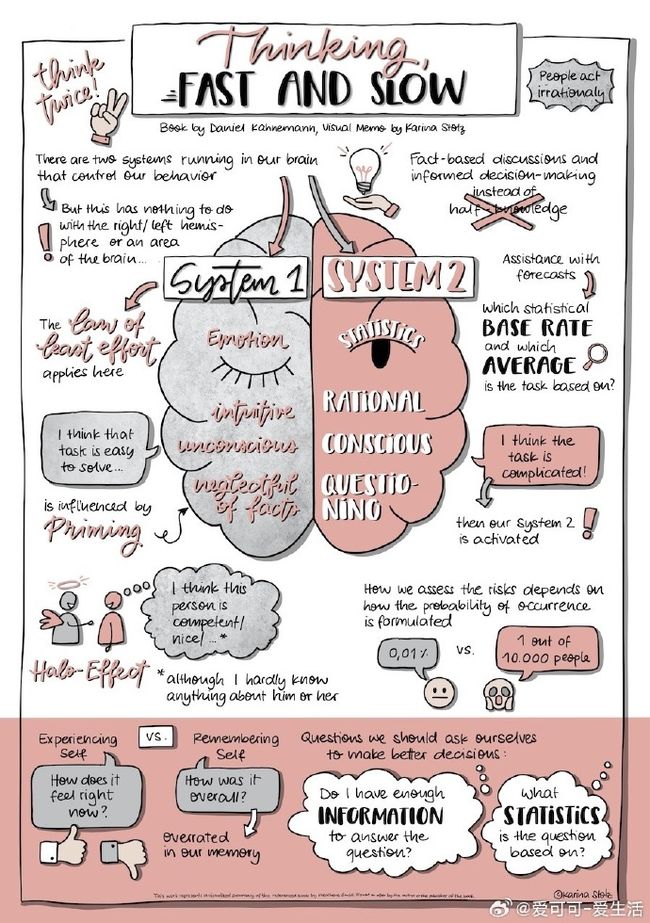 Thinking,
FAST AND SLOW
think
twice!
People act
irrationaly
Book by Daniel Kahnemann, Visual Memo by Karina Stolz
There are two systems running in our brain
that control our behavior
But this has nothing to do
with the right/left hemis-
phere or an area
of the brain...
!
Fact-based discussions and
informed decision-making
instead of
half-knowledge
System 1
SYSTEM 2
Assistance with
forecasts
Which statistical
BASE RATE
and which
AVERAGE
is the task based on?
The law of
least effort
applies here
Emotion
intuitive
unconscious
neglectful
of facts
STATISTICS
RATIONAL
CONSCIOUS
QUESTIO-
NING
I think that
task is easy
to solve...
is influenced by
Priming
I think the
task is
complicated!
then our System 2
is activated
!
I think this
person is
competent/
nice/...*
Halo-Effect
*although I hardly know
anything about him or her
How we assess the risks depends on
how the probability of occurrence
is formulated
0,01%
vs.
1 out of
10.000 people
Experiencing
Self
vs.
Remembering
Self
How does it
feel right
now?
How was it
overall?
overrated
in our memory
Questions we should ask ourselves
to make better decisions:
Do I have enough
INFORMATION
to answer the
question?
What
STATISTICS
is the question
based on?
©Karina Stolz
@爱可可-爱生活